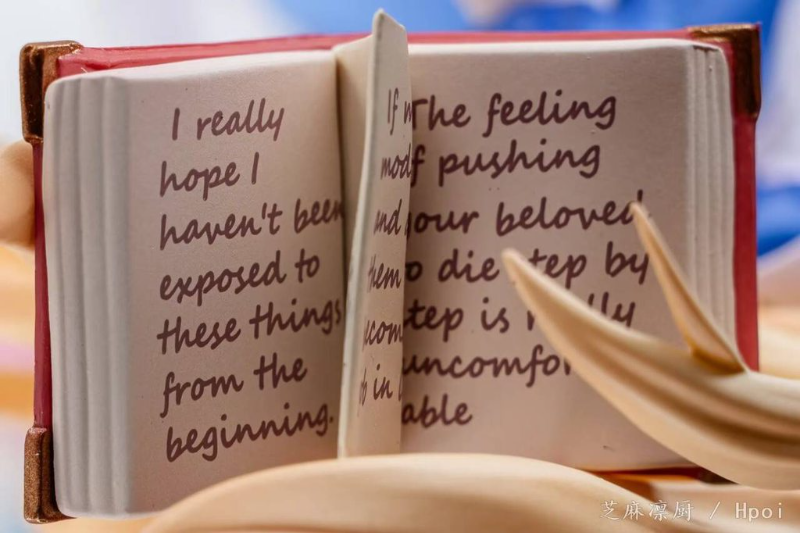 I really
hope I
haven't been
exposed to
these things
from the
beginning.
If
and
them
in
The feeling
f pushing
your beloved
o die step by
step is
uncomfor
able
芝麻凛厨 / Hpoi